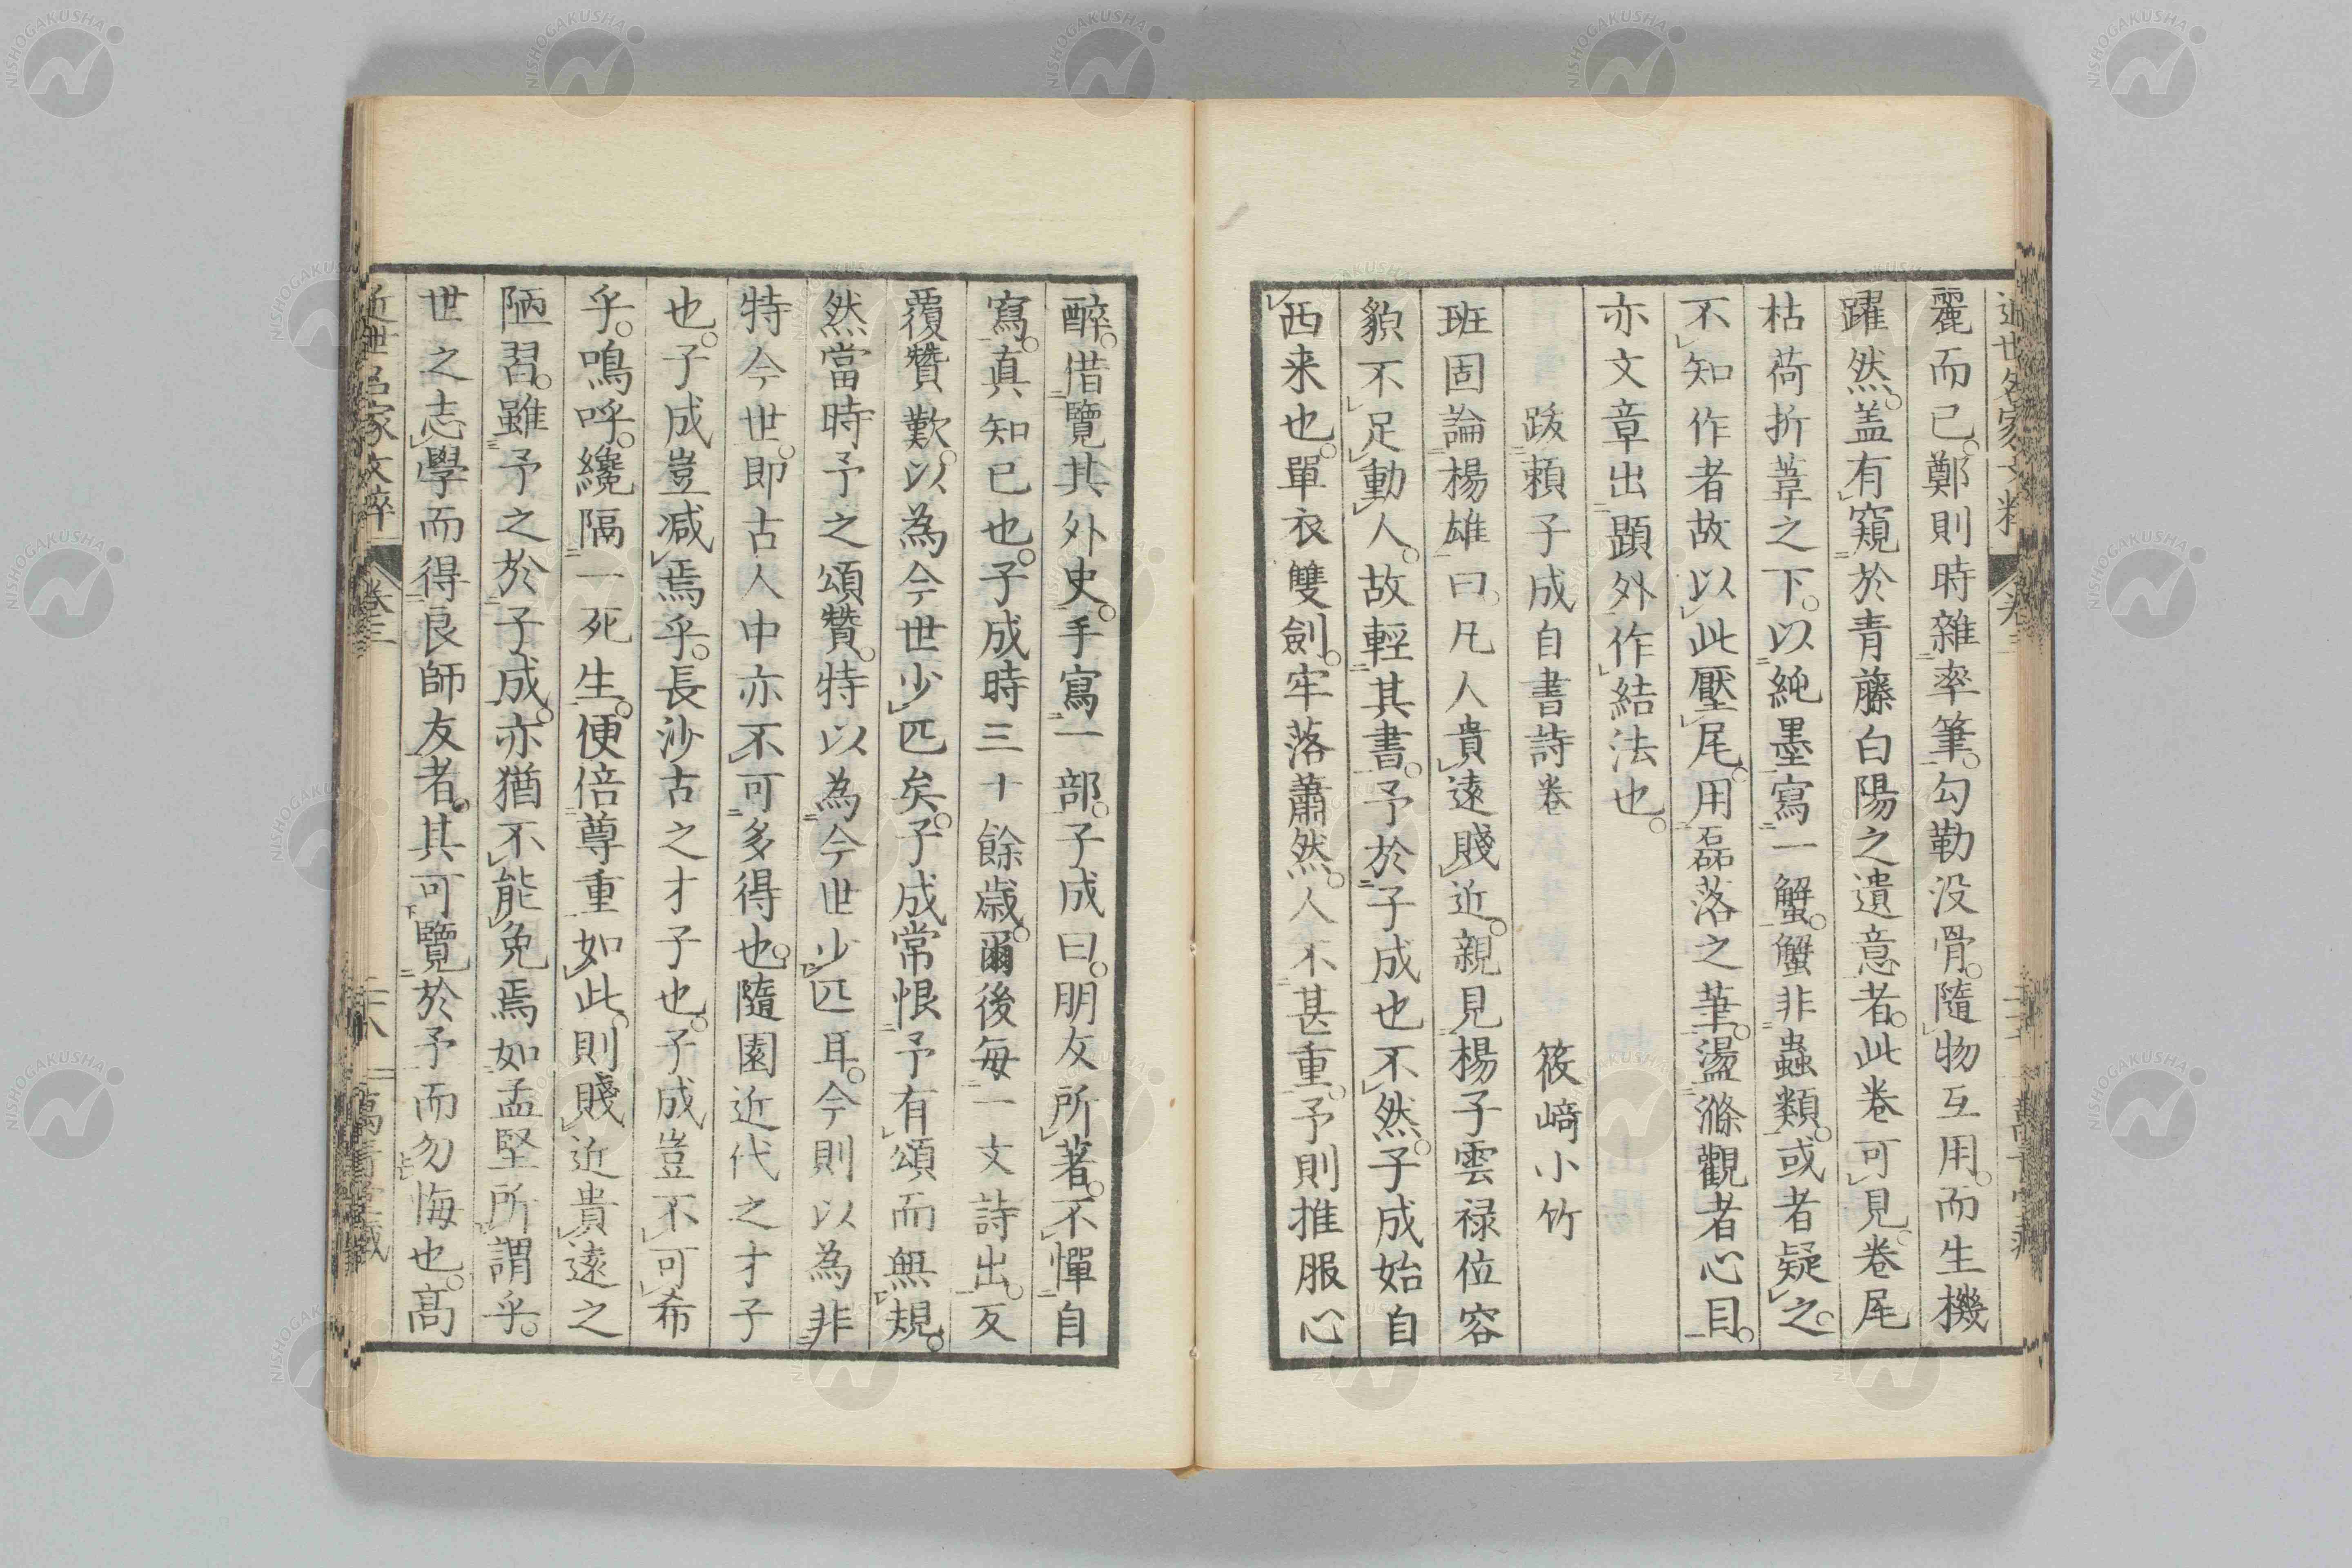 麗而已。鄭則時雜率筆。勾勒没骨。隨物互用。而生機
躍然。盖有窺於青藤白陽之遺意者。此卷可見。卷尾
枯荷折葦之下。以純墨寫一蟹。蟹非蟲類。或者疑之。
不知作者故以此壓尾。用磊落之筆。盪滌觀者心目。
亦文章出題外作結法也。
跋頼子成自書詩卷 筱﨑小竹
班固論楊雄曰。凡人貴遠賤近。親見楊子雲禄位容
貌不足動人。故輕其書。予於子成也不然。子成始自
西来也。單衣雙劍。牢落蕭然。人不甚重。予則推服心
醉。借覽其外史。手寫一部。子成曰。朋友所著。不憚自
寫。真知已也。子成時三十餘歳。爾後毎一文詩出。反
覆贊歎。以為今世少匹矣。子成常恨予有頌而無規。
然當時予之頌贊。特以為今世少匹耳。今則以為非
特今世。即古人中亦不可多得也。隨園近代之才子
也。子成豈減焉乎。長沙古之才子也。子成豈不可希
乎。鳴呼。纔隔一死生。便倍尊重如此。則賤近貴遠之
陋習。雖予之於子成。亦猶不能免焉如孟堅所謂乎。
世之志學而得良師友者。其可覽於予而勿悔也。高
近世名家文粹 卷三 二十八 萬青堂藏